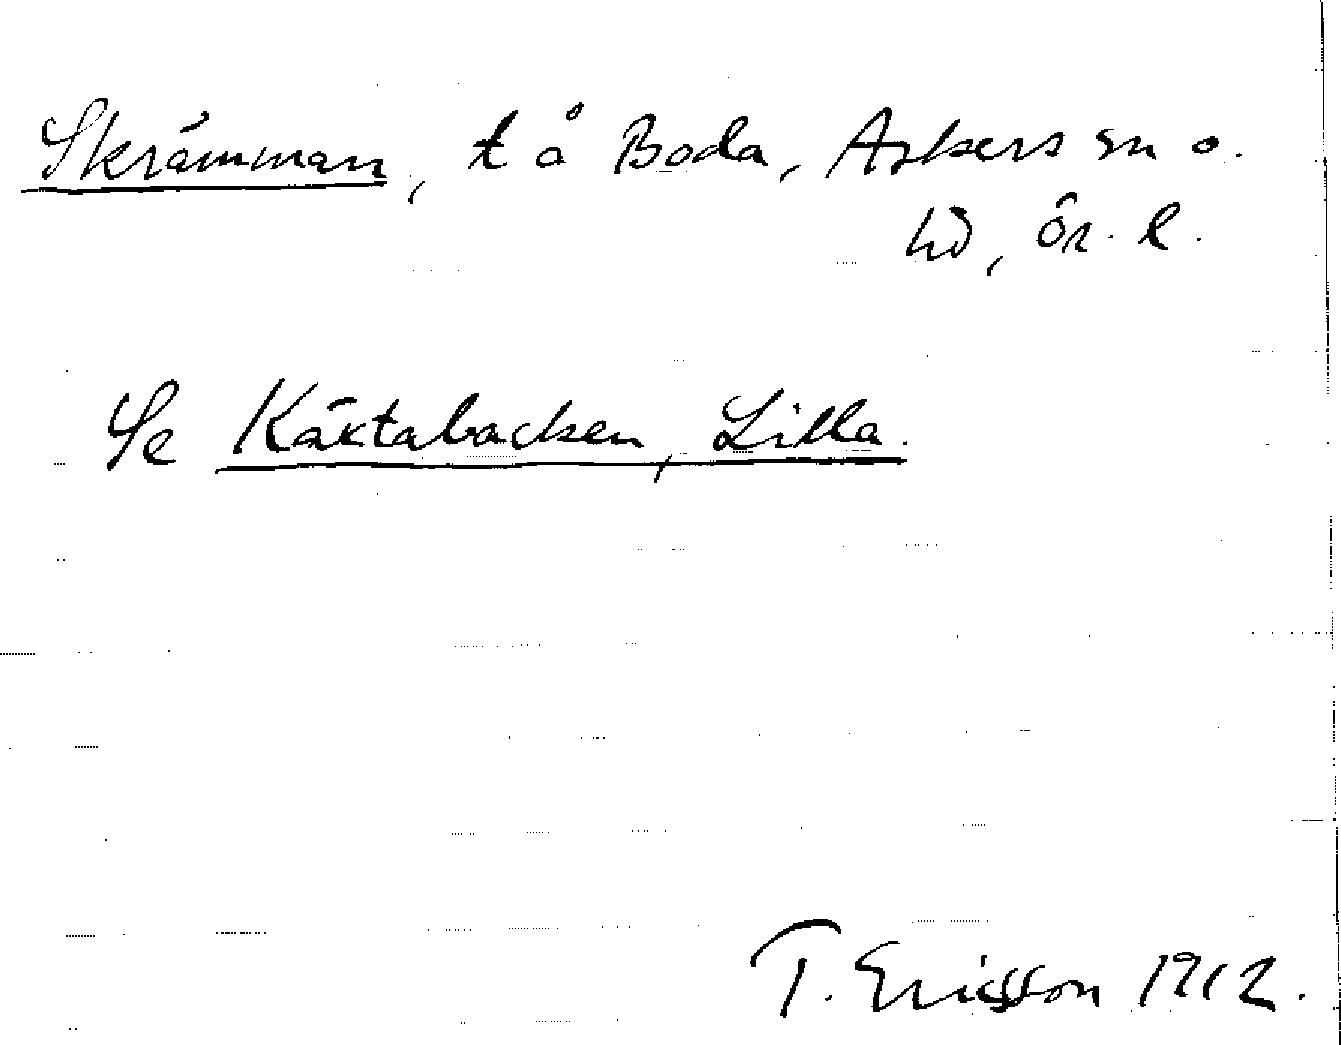 Skrämman, t å Boda, Askers sn o.
hd, Ör. l.
Se Käktabacken, Lilla.
T. Ericsson 1912.